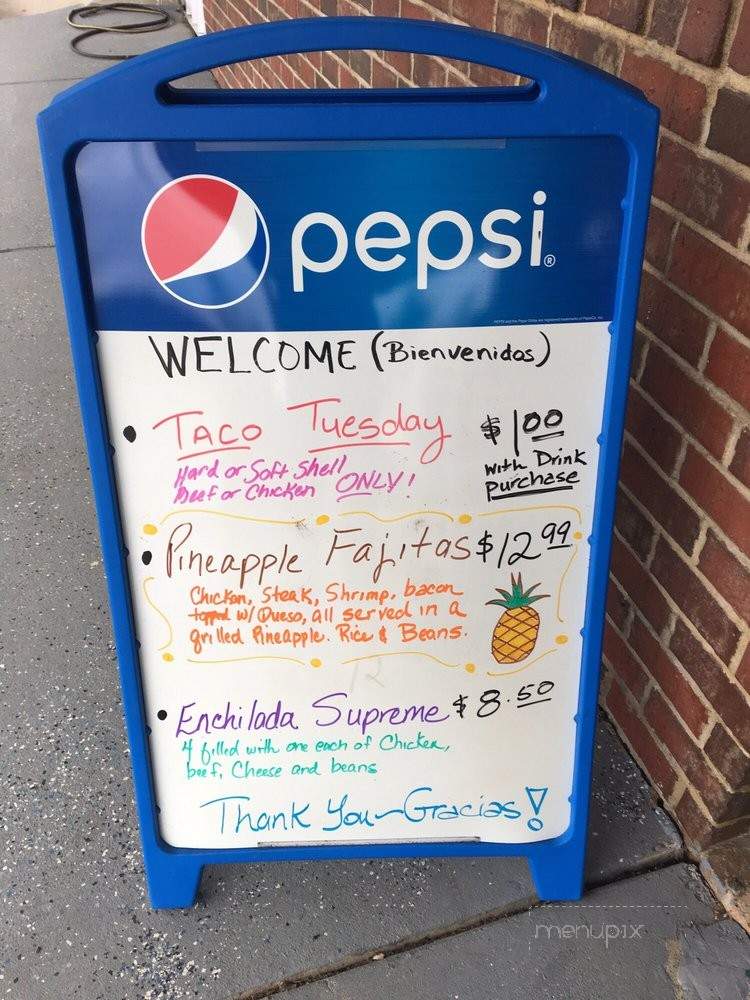 pepsi®
WELCOME (Bienvenidos)
• TACO Tuesday $1.00
Hard or Soft Shell
Beef or Chicken ONLY!
with Drink
purchase
• Pineapple Fajitas $12.99
Chicken, Steak, Shrimp, bacon
topped w/ Queso, all served in a
grilled Pineapple. Rice & Beans.
• Enchilada Supreme $8.50
4 filled with one each of Chicken,
beef, Cheese and beans
Thank You~Gracias!
menupix